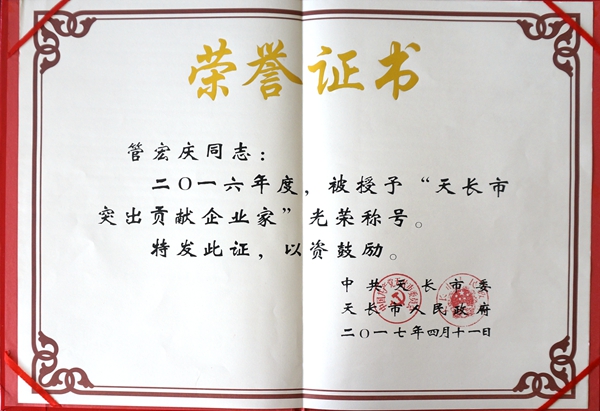 荣誉证书
管宏庆同志：
二〇一六年度，被授予“天长市
突出贡献企业家”光荣称号。
特发此证，以资鼓励。
中共天长市委
天长市人民政府
二〇一七年四月十一日